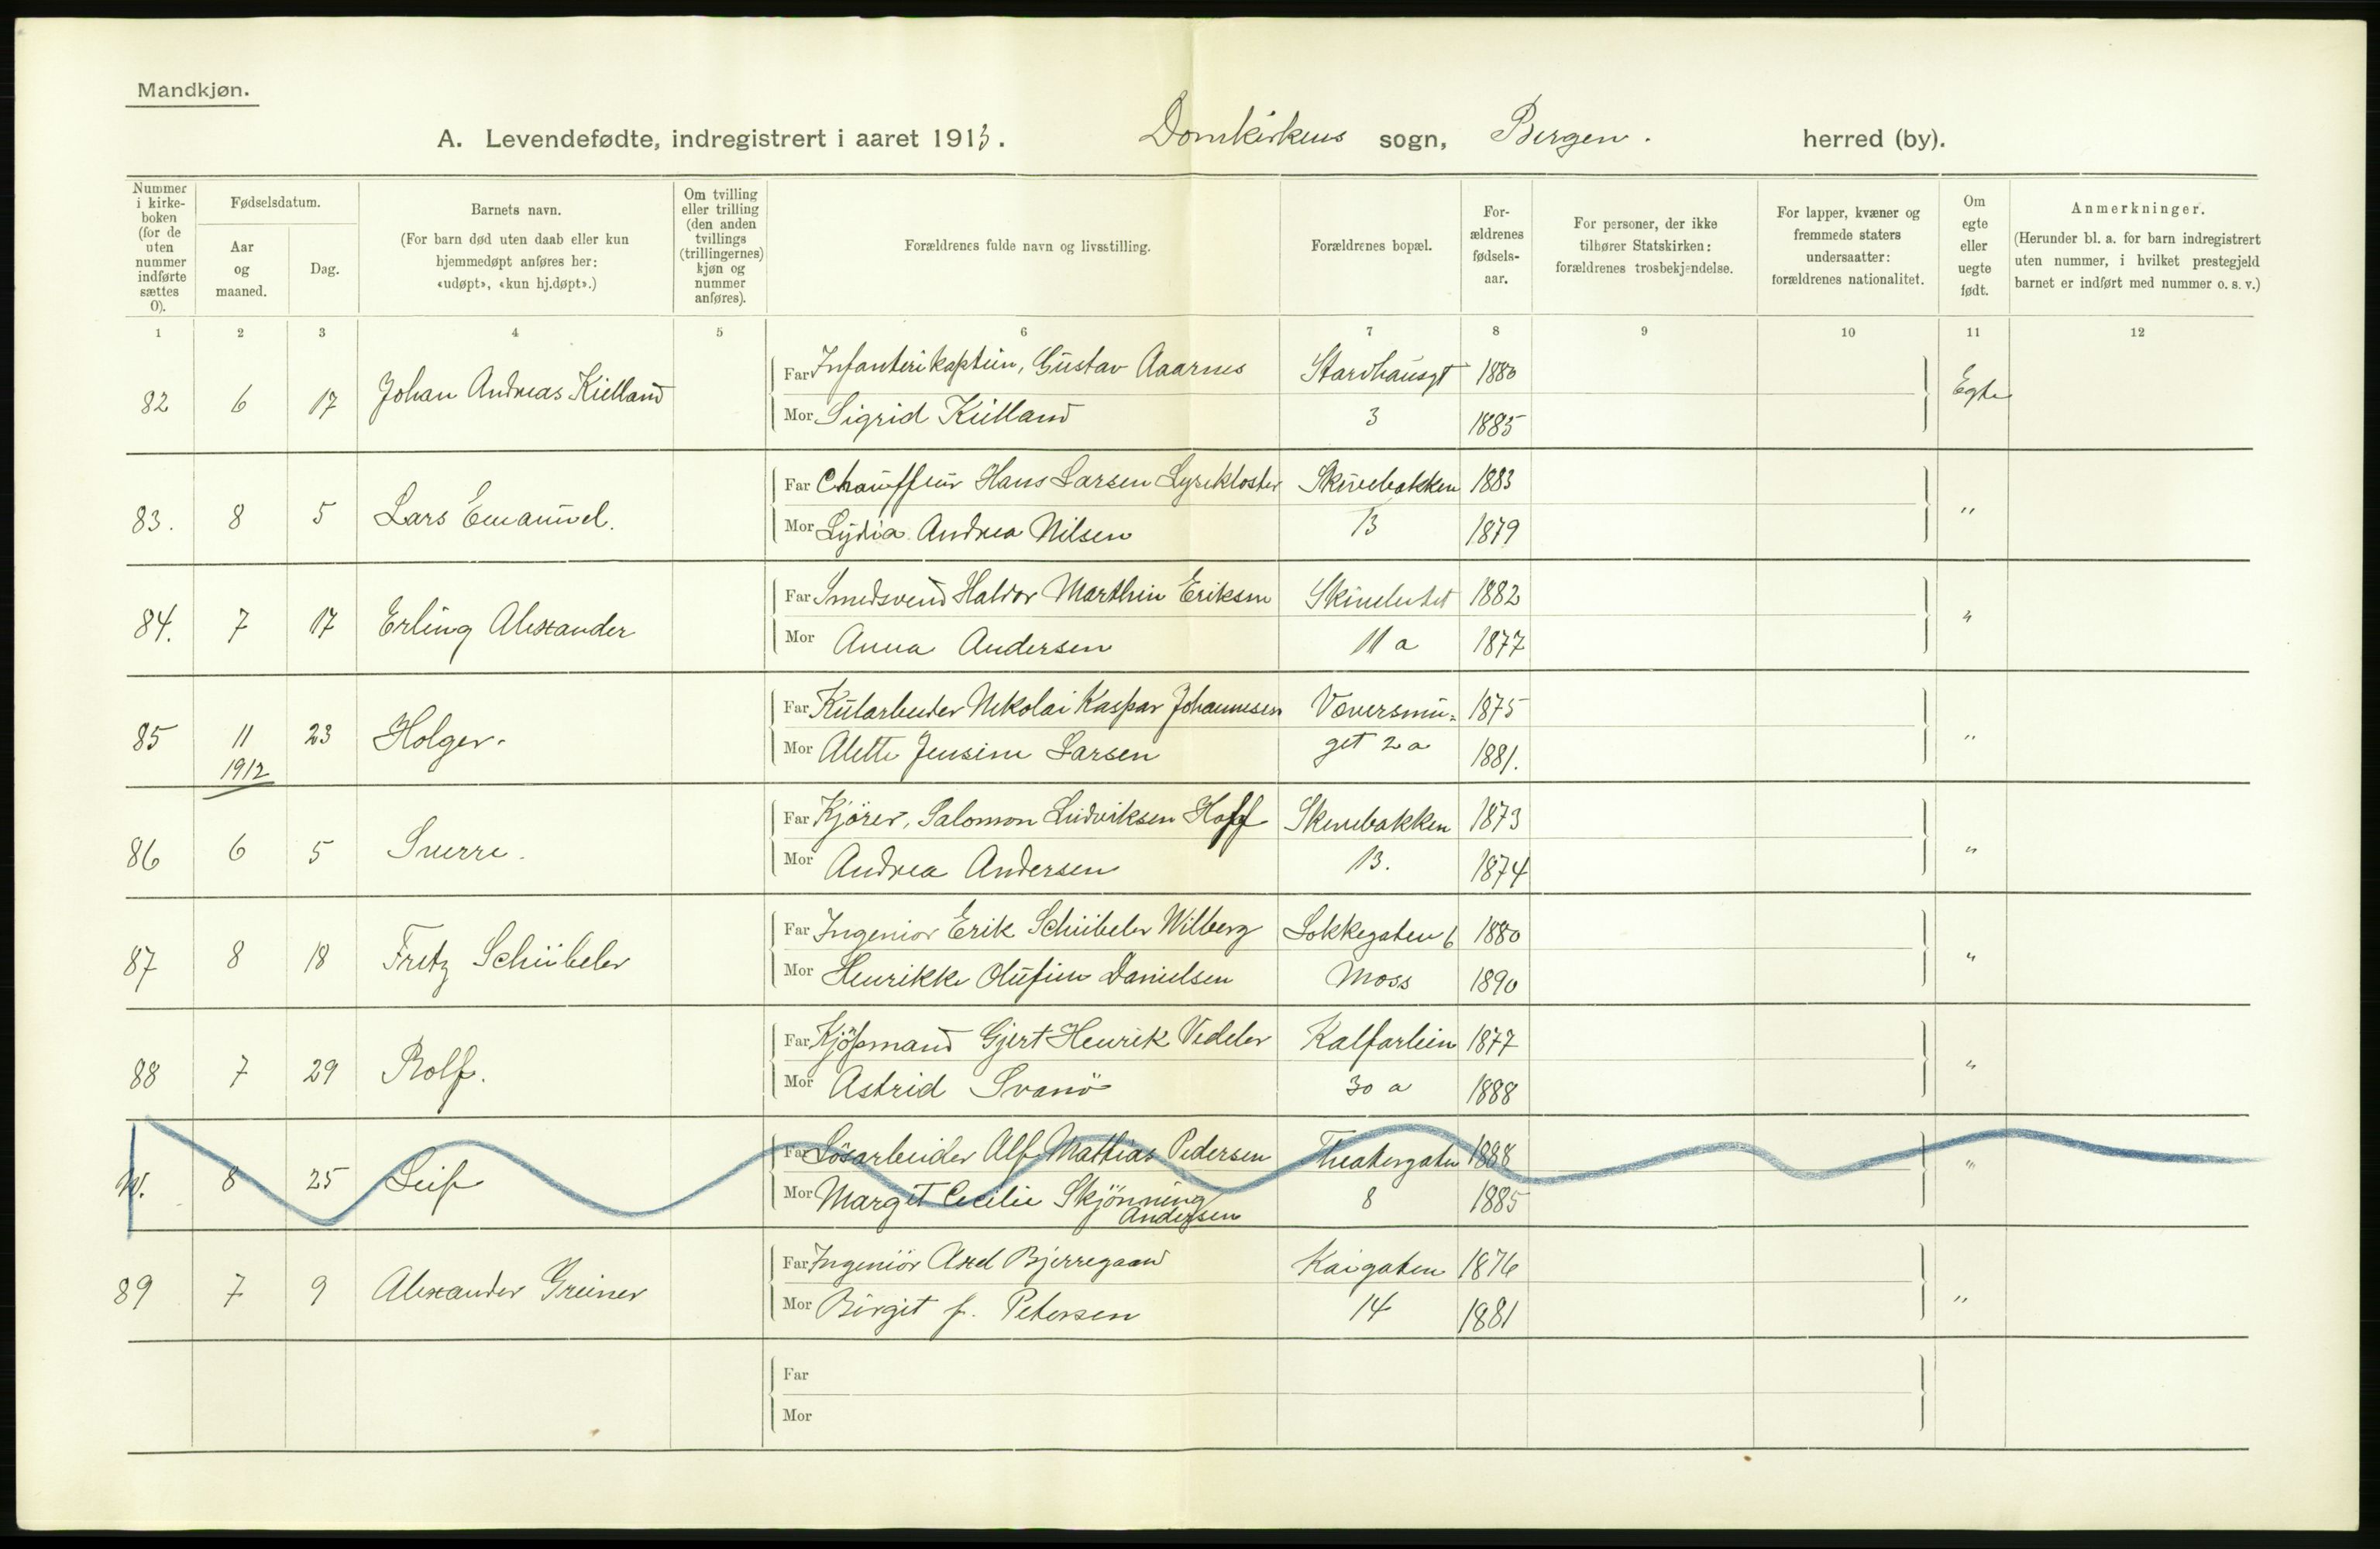 Mandkjøn.
A. Levendefødte, indregistrert i aaret 1913. Domkirkens sogn, Bergen. herred (by).
Nummer i kirke-boken (for de uten nummer indførte sættes 0).
Fødselsdatum.
Aar og maaned.
Dag.
Barnets navn.
(For barn død uten daab eller kun hjemmedøpt anføres her: «udøpt», «kun hj.døpt».)
Om tvilling eller trilling (den anden tvillings (trillingernes) kjøn og nummer anføres).
Forældrenes fulde navn og livsstilling.
Forældrenes bopæl.
For-ældrenes fødsels-aar.
For personer, der ikke tilhører Statskirken: forældrenes trosbekjendelse.
For lapper, kvæner og fremmede staters undersaatter: forældrenes nationalitet.
Om egte eller uegte født.
Anmerkninger.
(Herunder bl. a. for barn indregistrert uten nummer, i hvilket prestegjeld barnet er indført med nummer o. s. v.)
1 2 3 4 5 6 7 8 9 10 11 12
82 6 17 Johan Andreas Kielland Far Infanterikaptein, Gustav Aaarnes 1880 Egte
Mor Sigrid Kielland 3 1885
83. 8 5 Lars Emanuel. Far Chauffeur Hans Larsen Lysekloster Skivebakken 1883 "
Mor Lydia Andrea Nilsen 13 1879
84. 7 17 Erling Alexander Far Smedsvend Haldor Marthin Eriksen 1882 "
Mor Anna Andersen 11 a 1877
85 11 23 Holger. Far Nikolai Kaspar Johannesen Væversmu= 1875 "
1912 Mor Alette Jensine Larsen get 2 a 1881.
86 6 5 Sverre. Far Kjörer, Salomon Ludviksen Hoff Skivebakken 1873 "
Mor Andrea Andersen 13. 1874
87 8 18 Fritz Schübeler Far Ingeniør Erik Schübeler Wilberg Lokkegaten 6 1880 "
Mor Henrikke Olufine Danielsen Moss 1890
88 7 29 Rolf. Far Kjöpmand Gjert Henrik Vedeler Kalfarlien 1877 "
Mor Astrid Svanö 30 a 1888
8 25 Leif Far Lösarbeider Alf Mathias Pedersen Theatergaten 1888 "
Mor Margit Cecilie Skjönning Andersen 8 1885
89 7 9 Alexander Greiner Far Ingeniör Axel Bjerregaard Kaigaten 1876 "
Mor Birgit f. Petersen 14 1881
Far
Mor